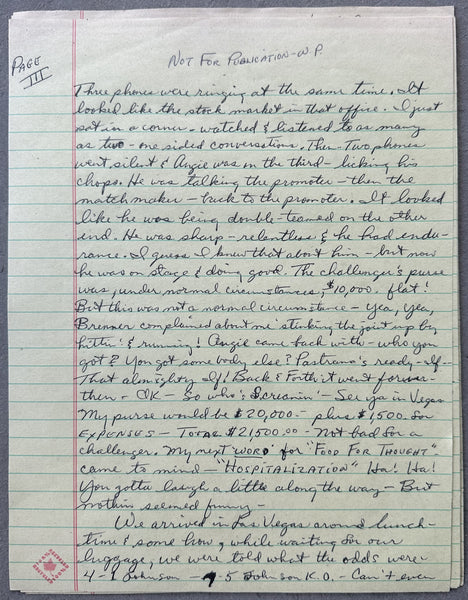 PAGE
III
NOT FOR PUBLICATION - W.P.
Three phones were ringing at the same time. It
looked like the stock market in that office. I just
sat in a corner - watched & listened to as many
as two - one sided conversations. Then - Two phones
went silent & Angie was on the third - licking his
chops. He was talking the promoter - then the
matchmaker - back to the promoter. It looked
like he was being double-teamed on the other
end. He was sharp - relentless & he had endu-
rance. I guess I knew that about him - but now
he was on stage & doing good. The challenger's purse
was, under normal circumstances, $10,000. flat!
But this was not a normal circumstance - Yea, Yea,
Brenner complained about me 'stinking the joint up by
hittin' & running! Angie came back with - who you
got? You got somebody else? Pastrano's ready - If -
That almighty If! Back & Forth it went forever -
then - OK - So who's Screamin' - See ya in Vegas
My purse would be $20,000 - plus $1,500 for
EXPENSES - TOTAL $21,500.00 - Not bad for a
challenger. My next "WORD" for "FOOD FOR THOUGHT"
came to mind - "HOSPITALIZATION" Ha! Ha!
You gotta laugh a little along the way - But
nothin seemed funny -
We arrived in Las Vegas around lunch-
time & some how, while waiting for our
luggage, we were told what the odds were
4-1 Johnson - 7 5 Johnson K.O. - Can't even